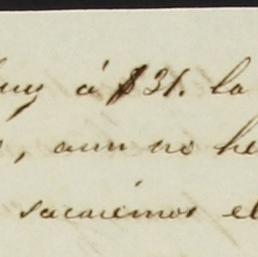 á $31. la
, aun no he
sacaremos el